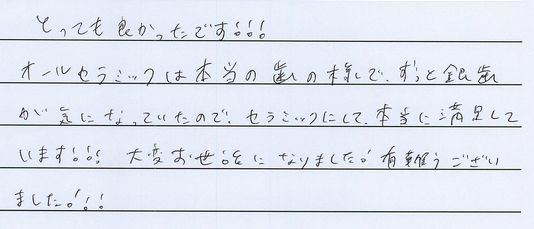 とっても良かったです!!!
オールセラミックは本当の歯の様で、ずっと銀歯
が気になっていたので、セラミックにして、本当に満足して
います!!! 大変お世話になりました! 有難うござい
ました!!!